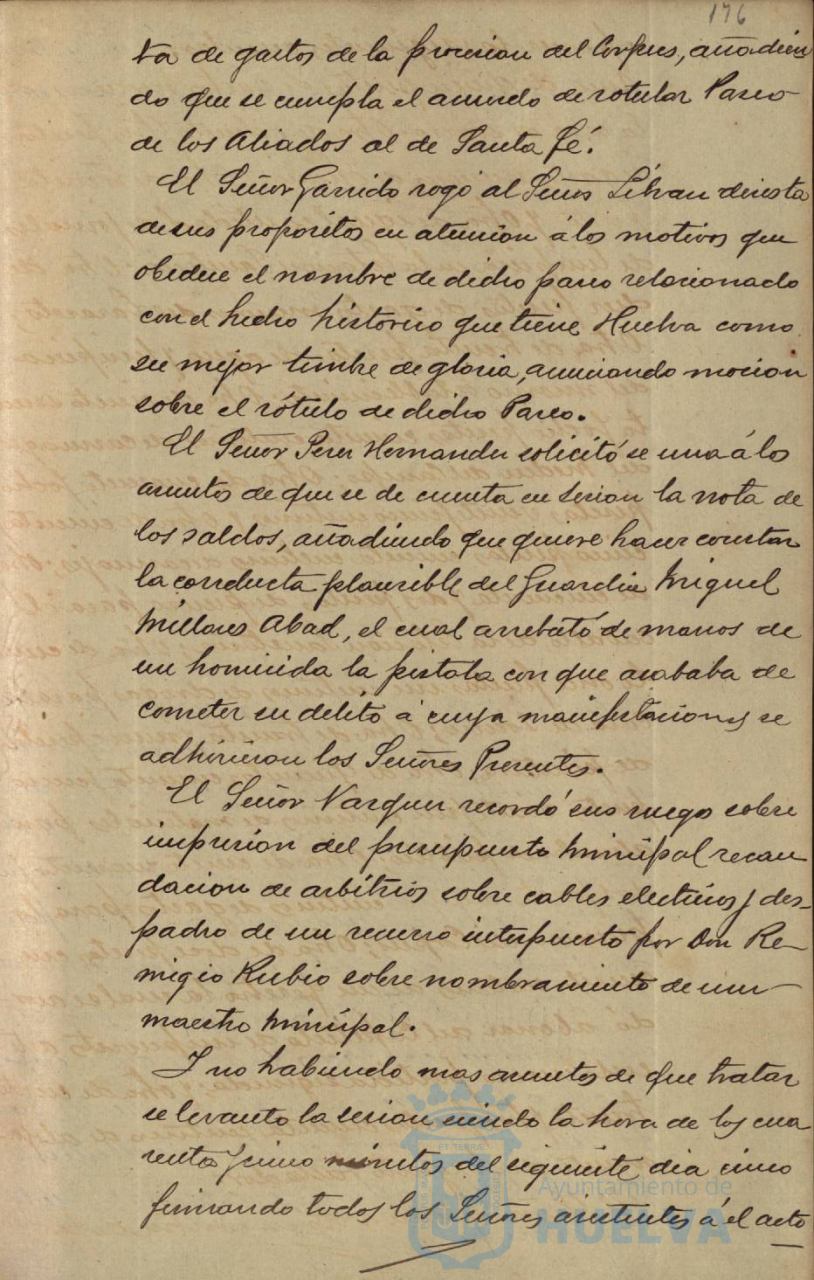 176
ta de gastos de la procesion del Corpus, añadien
do que se cumpla el acuerdo de rotular Paseo
de los Aliados al de Santa Fé.
El Señor Garrido rogó al Señor desista
de sus propositos en atencion á los motivos que
obedece el nombre de dicho paseo relacionado
con el hecho historico que tiene Huelva como
su mejor timbre de gloria, anunciando mocion
sobre el rótulo de dicho Paseo.
El Señor Perez Hernandez solicitó se una á los
asuntos de que se de cuenta en sesion la nota de
los saldos, añadiendo que quiere hacer constar
la conducta plausible del Guardia Miguel
Millares Abad, el cual arrebató de manos de
un homicida la pistola con que acababa de
cometer su delito á cuya manifestaciones se
adhirieron los Señores Presentes.
El Señor Vazquez recordó sus ruegos sobre
impresion del presupuesto Municipal recau
dacion de arbitrios sobre cables electricos y des-
pacho de un recurso interpuesto por Don Re-
migio Rubio sobre nombramiento de un
maestro Municipal.
Y no habiendo mas asuntos de que tratar
se levanto la sesion siendo la hora de los cua
renta y cinco minutos del siguiente dia cinco
firmando todos los Señores asistentes á el acto
Ayuntamiento de
HUELVA